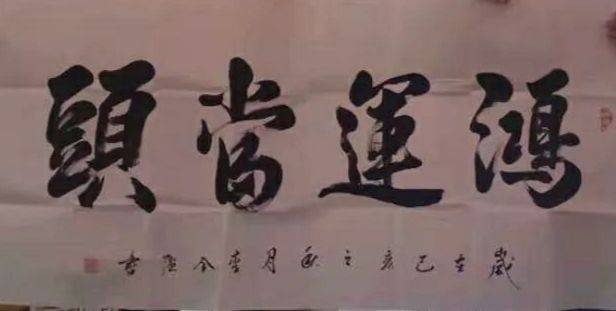 鴻運當頭
歲在己亥之秋月李金隆書